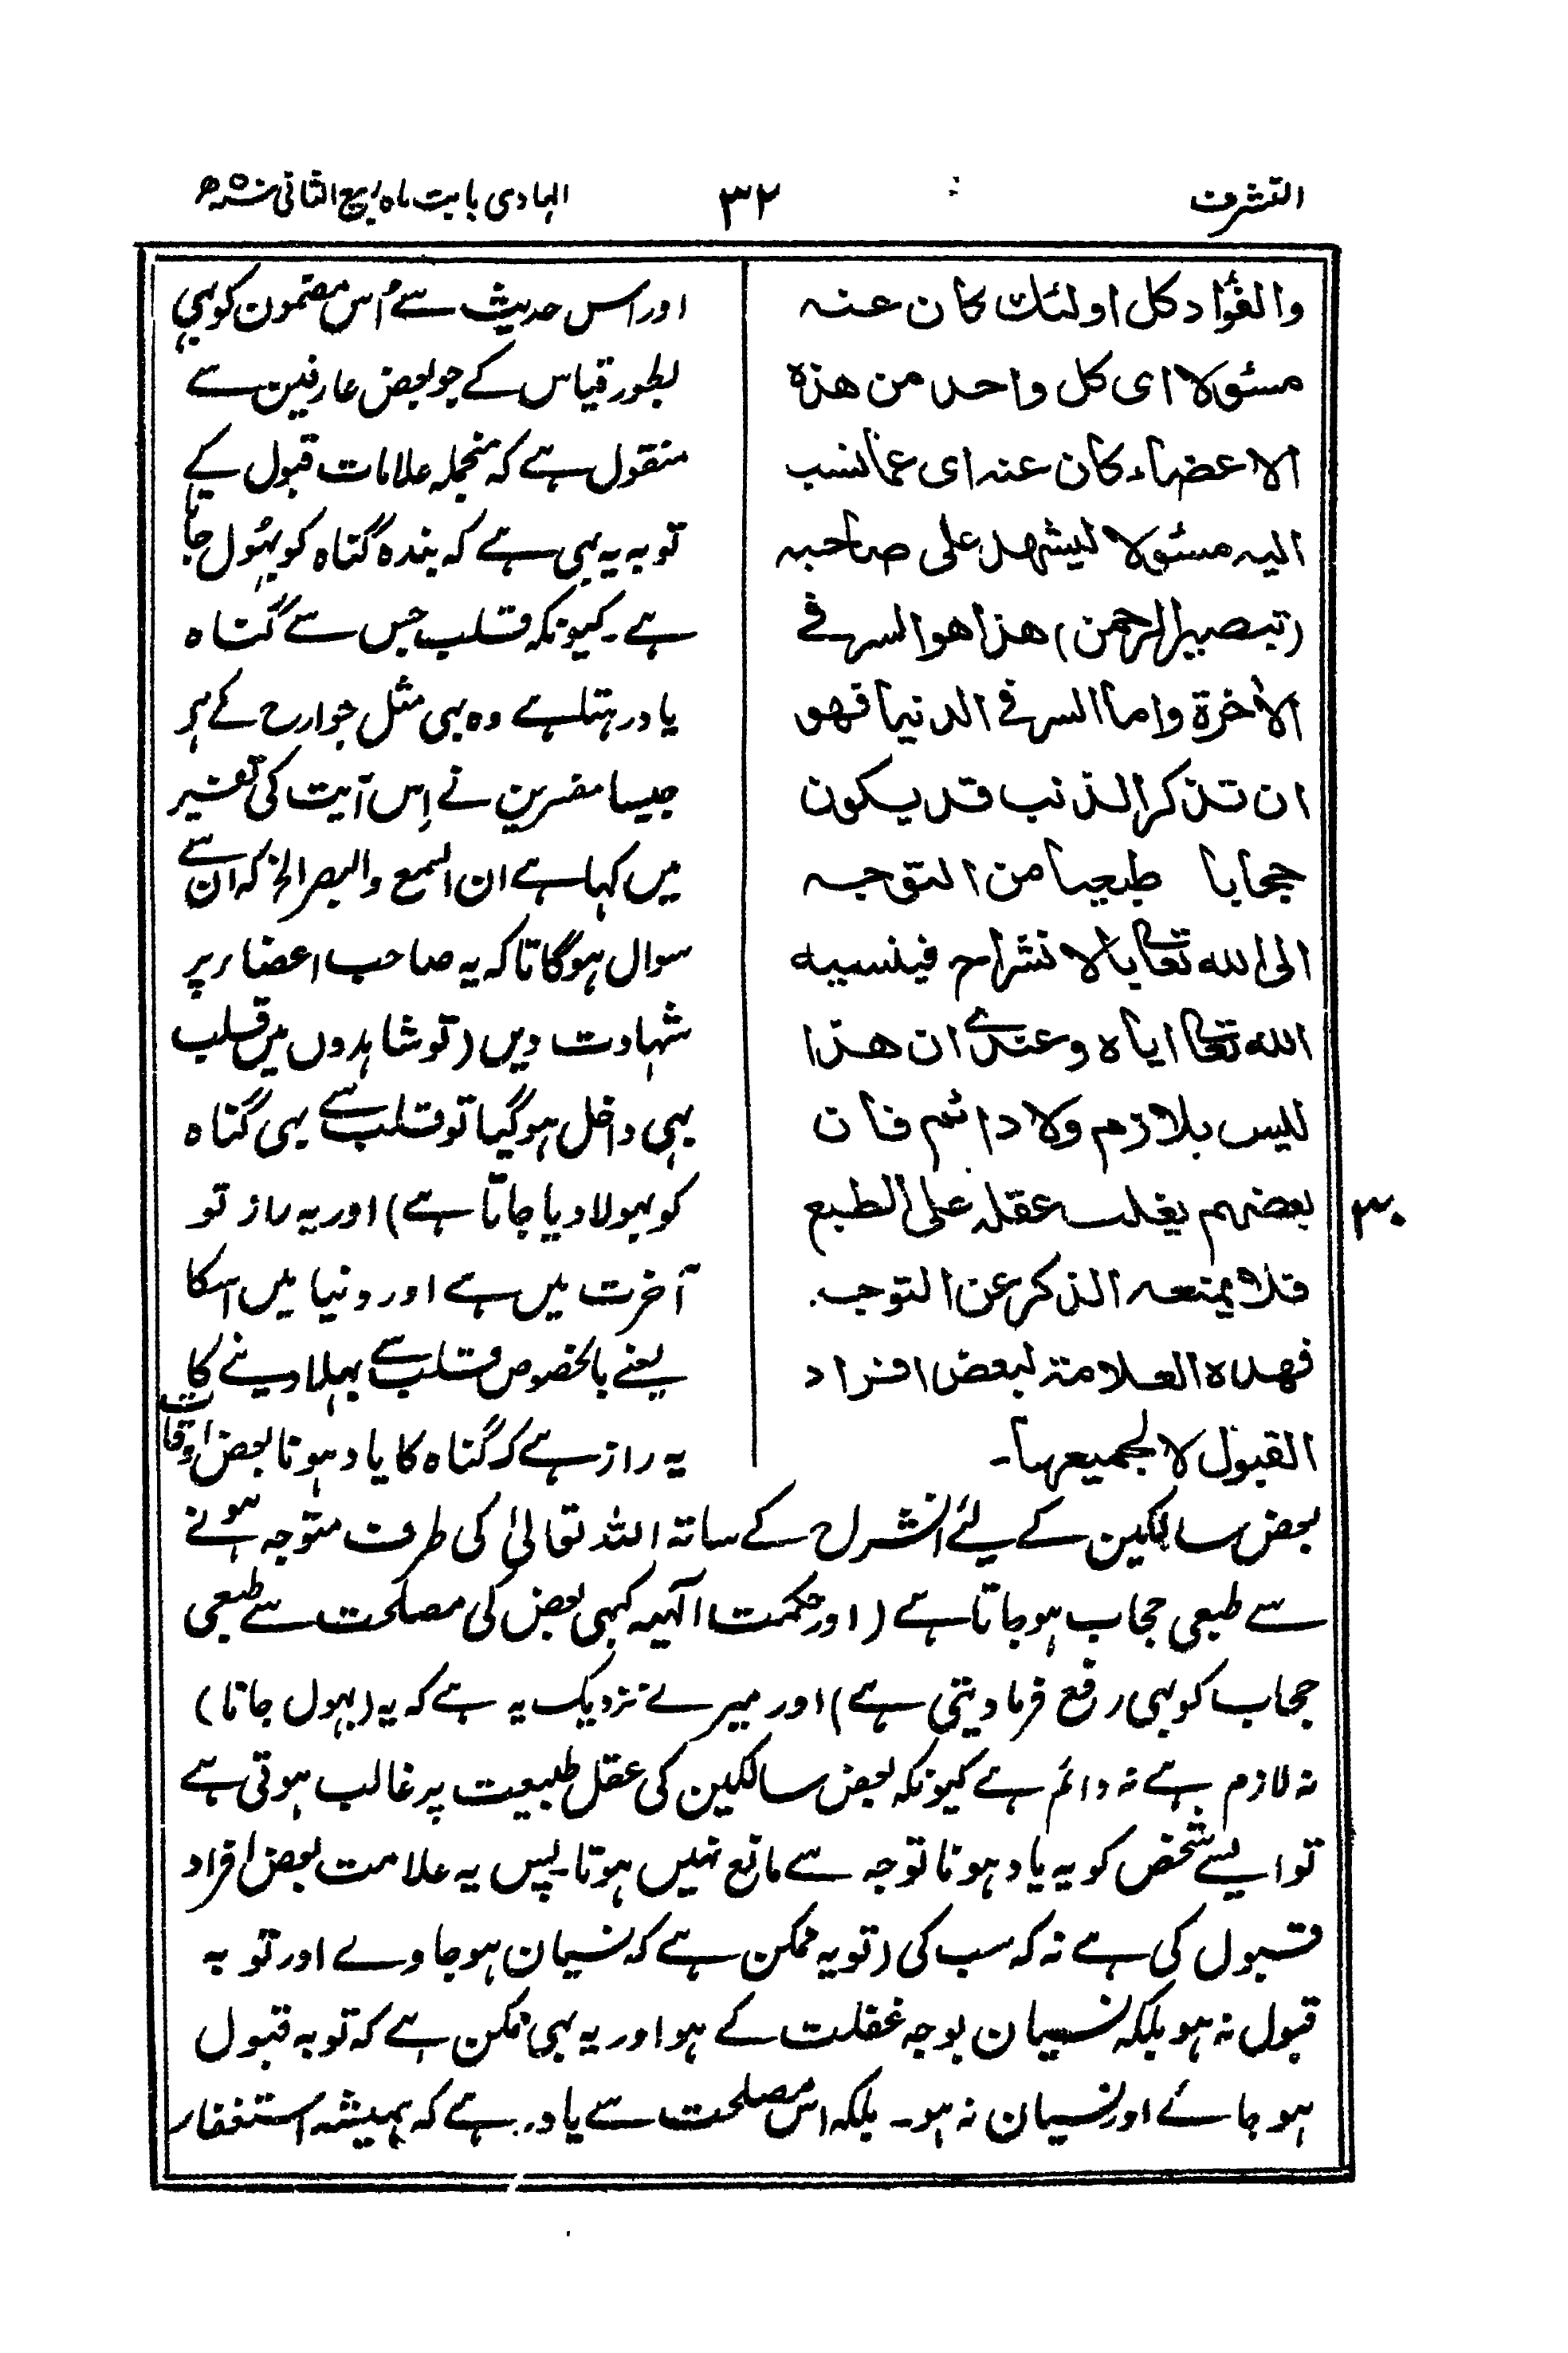 التشرف ۳۲ الہادی بابت ماہ ربیع الثانی سنہ ۵۰ھ
والفؤاد كل اولئك كان عنه
مسئولا اى كل واحد من هذه
الاعضاء كان عنه اى عما نسب
اليه مسئولا ليشهد على صاحبه
(تبصير الرحمن) هذا هو السر فى
الأخرة واما السر فى الدنيا فهو
ان تذكر الذنب قد يكون
حجابا طبعيا من التوجه
الى الله تعالى بالانشراح فينسيه
الله تعالى اياه وعندى ان هذا
ليس بلازم ولا دائم فان
بعضهم يغلب عقله على الطبع
فلا يمنعه الذكر عن التوجه.
فهذه العلامة لبعض افراد
القبول لا لجميعها۔
اور اس حدیث سے اُس مضمون کو بہی
بطور قیاس کے جو بعض عارفین سے
منقول ہے کہ منجملہ علامات قبول کے
توبہ یہ بہی ہے کہ بندہ گناہ کو بہُول جاتا
ہے۔ کیونکہ قلب جس سے گناہ
یاد رہتا ہے وہ بہی مثل جوارح کے ہر
جیسا مفسرین نے اِس آیت کی تفسیر
میں کہا ہے ان السمع والبصر الخ کہ ان سے
سوال ہوگا تاکہ یہ صاحب اعضاء پر
شہادت دیں (تو شاہدوں میں قلب
بہی داخل ہوگیا تو قلب سے بہی گناہ
کو بہولا دیا جاتا ہے) اور یہ راز تو
آخرت میں ہے اور دنیا میں اسکا
یعنے بالخصوص قلب سے بہلا دینے کا
یہ راز ہے کہ گناہ کا یاد ہونا بعض اوقات
بعض سالکین کے لیٔے انشراح کے ساتہ اللہ تعالیٰ کی طرف متوجہ ہونے
سے طبعی حجاب ہوجاتا ہے (اور حکمت الٰہیہ کبہی بعض کی مصلحت سے طبعی
حجاب کو بہی رفع فرما دیتی ہے) اور میرے نزدیک یہ ہے کہ یہ (بہول جانا)
نہ لازم ہے نہ دائم ہے کیونکہ بعض سالکین کی عقل طبیعت پر غالب ہوتی ہے
تو ایسے شخص کو یہ یاد ہونا توجہ سے مانع نہیں ہوتا۔ پس یہ علامت بعض افراد
قبول کی ہے نہ کہ سب کی (تو یہ ممکن ہے کہ نسیان ہوجاوے اور توبہ
قبول نہ ہو بلکہ نسیان بوجہ غفلت کے ہو اور یہ بہی ممکن ہے کہ توبہ قبول
ہو جاۓ اور نسیان نہ ہو۔ بلکہ اس مصلحت سے یاد رہے کہ ہمیشہ استغفار
۳۰